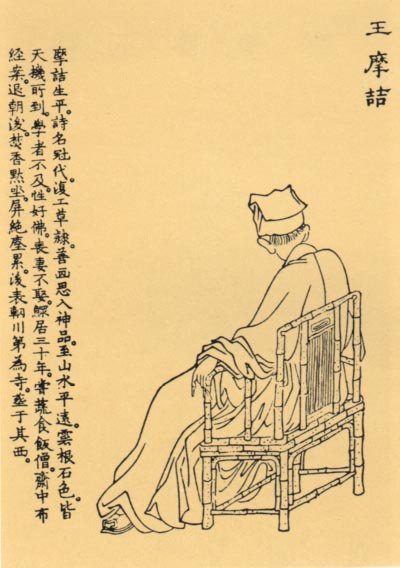 王摩詰
摩詰生平詩名冠代。復工草隸。善畫思入神品。至山水平遠。雲根石色。皆
天機所到。學者不及。性好佛。喪妻不娶。鰥居三十年。嘗蔬食飯僧。齋中布
經案。退朝後焚香默坐。屏絕塵累。後表輞川第為寺。塟于其西。